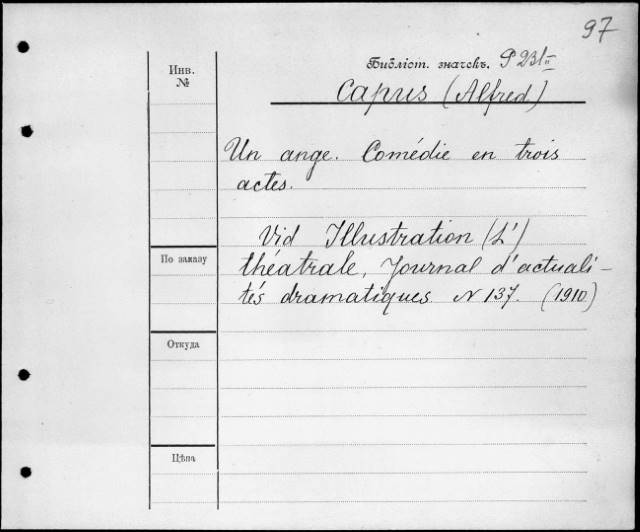 97
Библіот. значекъ. P 231
Инв.
№
Capus (Alfred)
Un ange. Comédie en trois
actes.
Vid Illustration (L')
théatrale, Journal d'actuali-
tés dramatiques N 137. (1910)
По заказу
Откуда
Цѣна